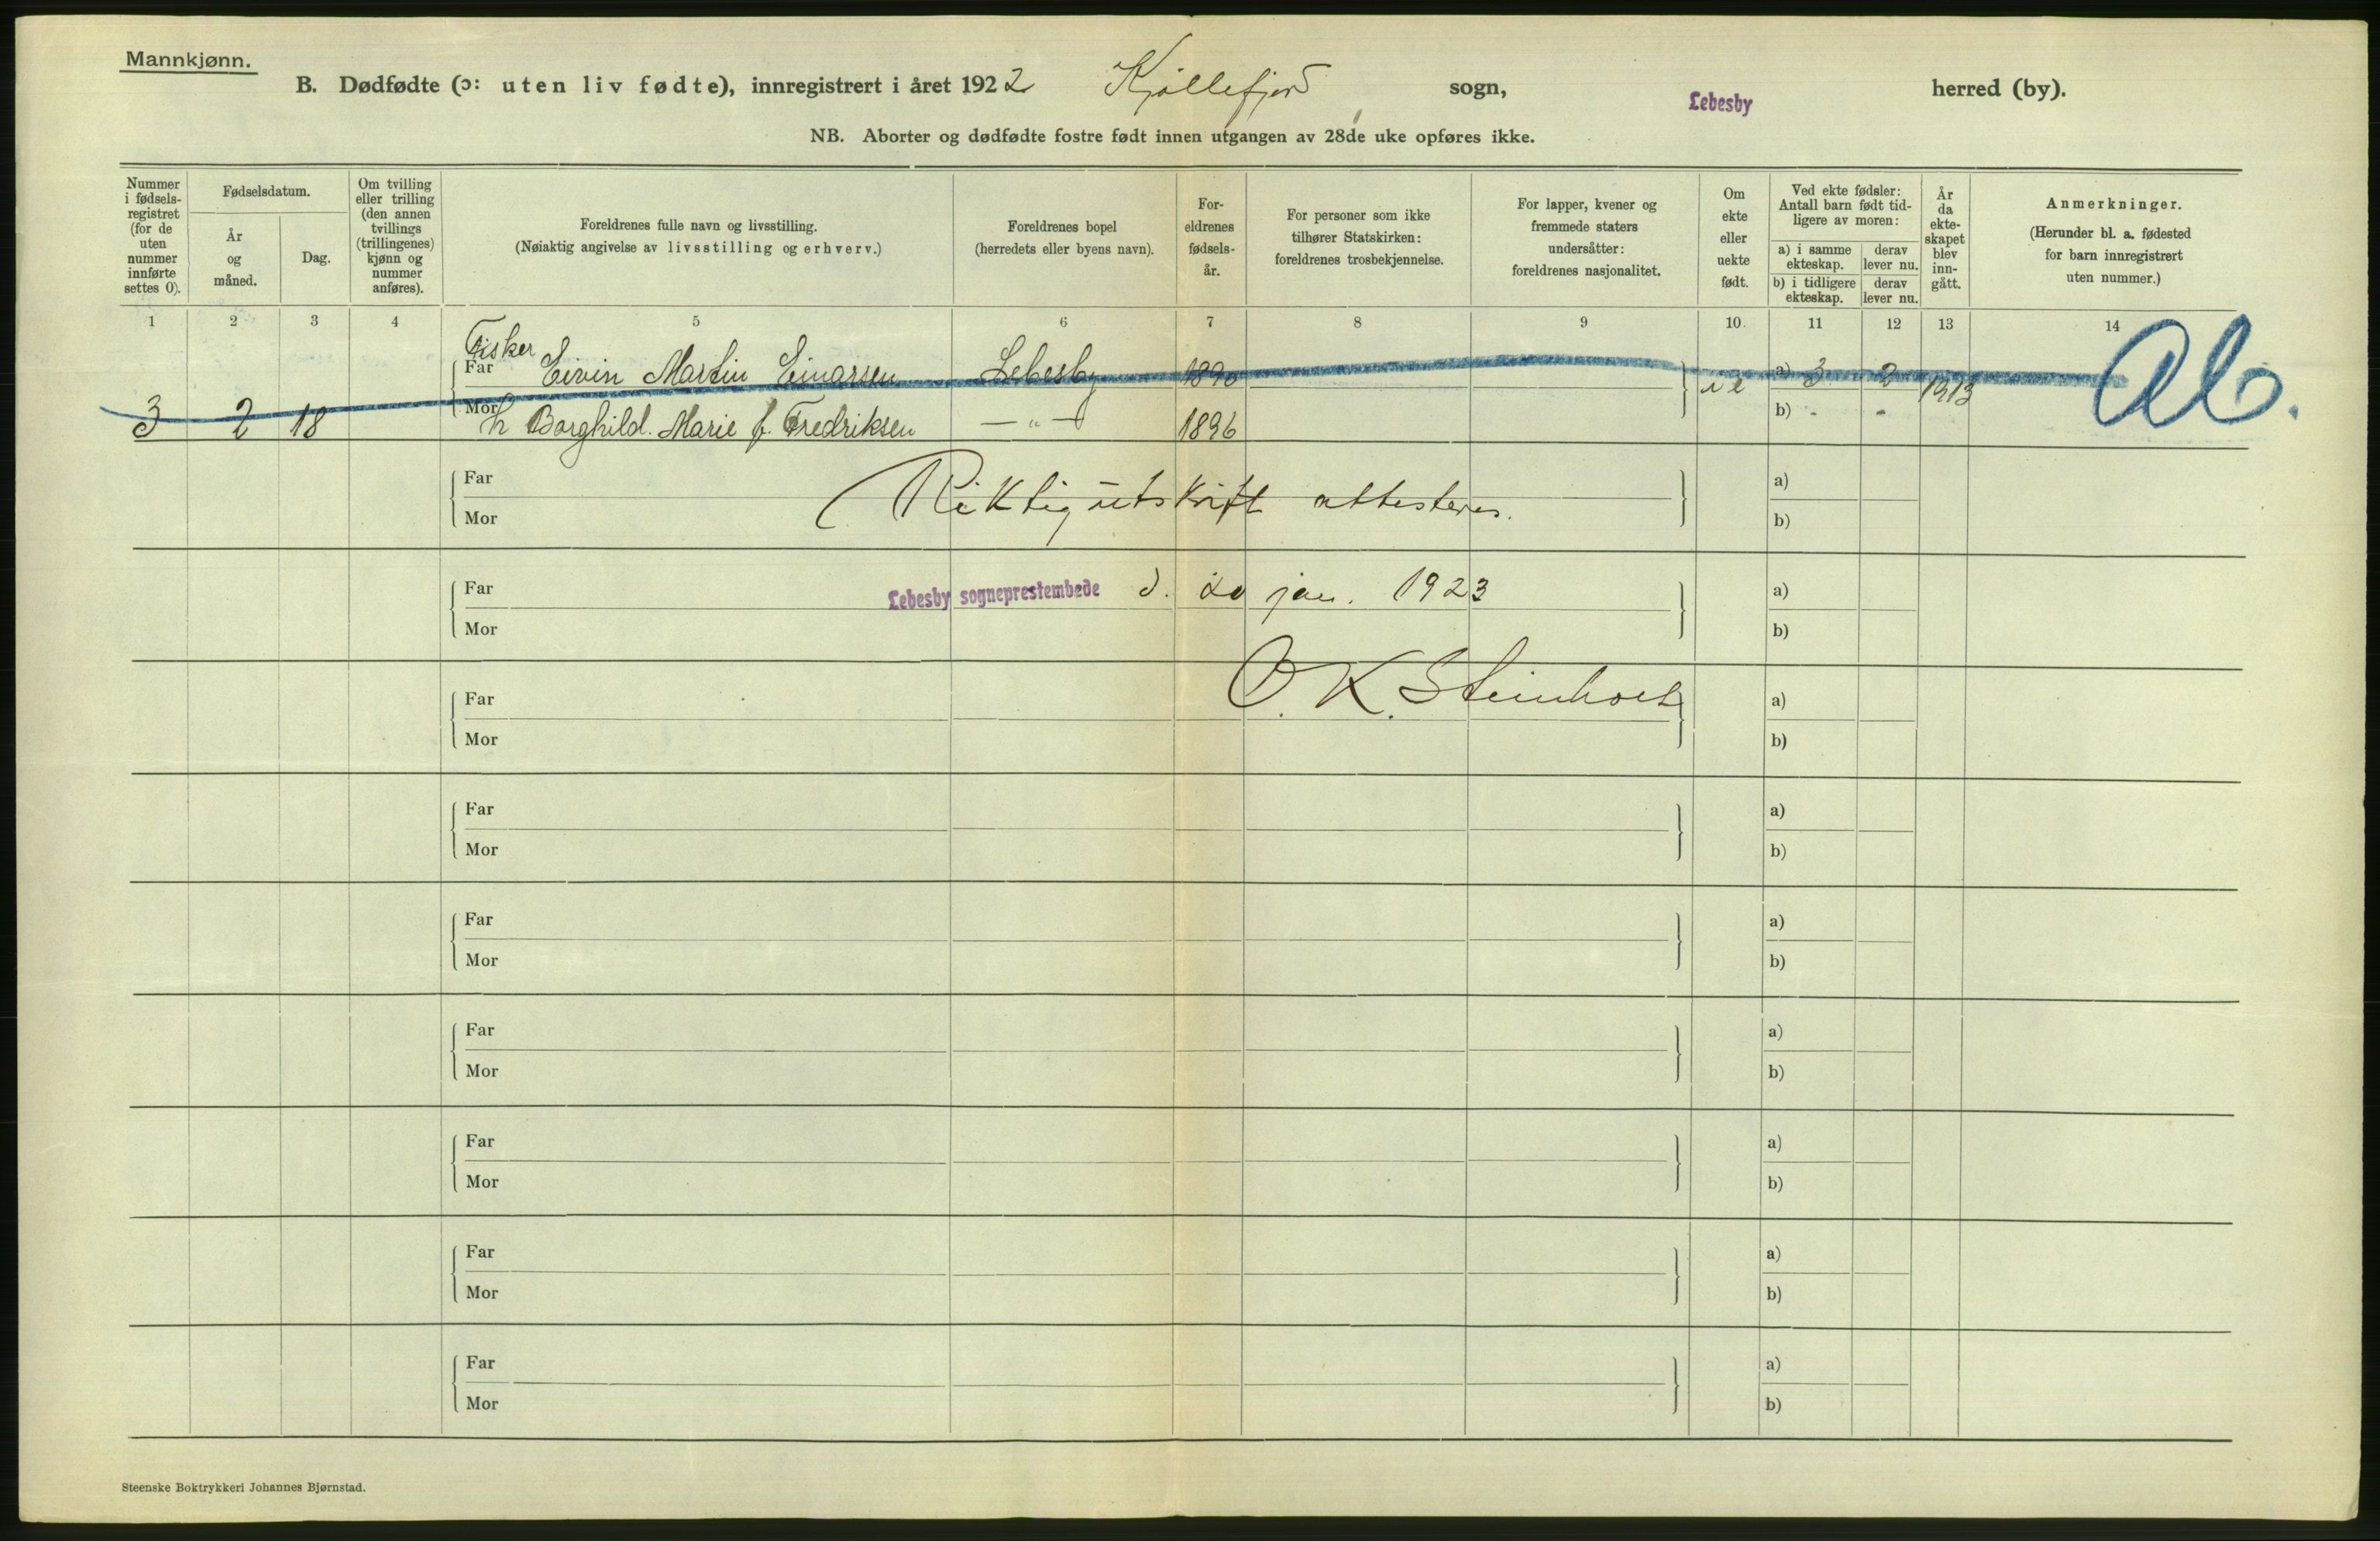 Mannkjønn.
B. Dødfødte (ɔ: uten liv fødte), innregistrert i året 1922 Kjøllefjord sogn, Lebesby herred (by).
NB. Aborter og dødfødte fostre født innen utgangen av 28de uke opføres ikke.
Nummer i fødsels- registret (for de uten nummer innførte settes 0).
Fødselsdatum.
År og måned.
Dag.
Om tvilling eller trilling (den annen tvillings (trillingenes) kjønn og nummer anføres).
Foreldrenes fulle navn og livsstilling.
(Nøiaktig angivelse av livsstilling og erhverv.)
Foreldrenes bopel
(herredets eller byens navn).
For- eldrenes fødsels- år.
For personer som ikke tilhører Statskirken: foreldrenes trosbekjennelse.
For lapper, kvener og fremmede staters undersåtter: foreldrenes nasjonalitet.
Om ekte eller uekte født.
Ved ekte fødsler: Antall barn født tid- ligere av moren:
a) i samme ekteskap.
derav lever nu.
b) i tidligere ekteskap.
derav lever nu.
År da ekte- skapet blev inn- gått.
Anmerkninger.
(Herunder bl. a. fødested for barn innregistrert uten nummer.)
1 2 3 4 5 6 7 8 9 10. 11 12 13 14
Fisker
Far Eivin Martin Einarsen Lebesby 1890 a) 3 2 1913
3 2 18 Mor h Borghild. Marie f. Fredriksen — „ — 1896 b) - -
Far a)
Riktig utskrift attesteres.
Mor b)
Far Lebesby sogneprestembede d. 20 jan. 1923 a)
Mor b)
O. K. Steinholt
Far a)
Mor b)
Far a)
Mor b)
Far a)
Mor b)
Far a)
Mor b)
Far a)
Mor b)
Far a)
Mor b)
Far a)
Mor b)
Steenske Boktrykkeri Johannes Bjørnstad.